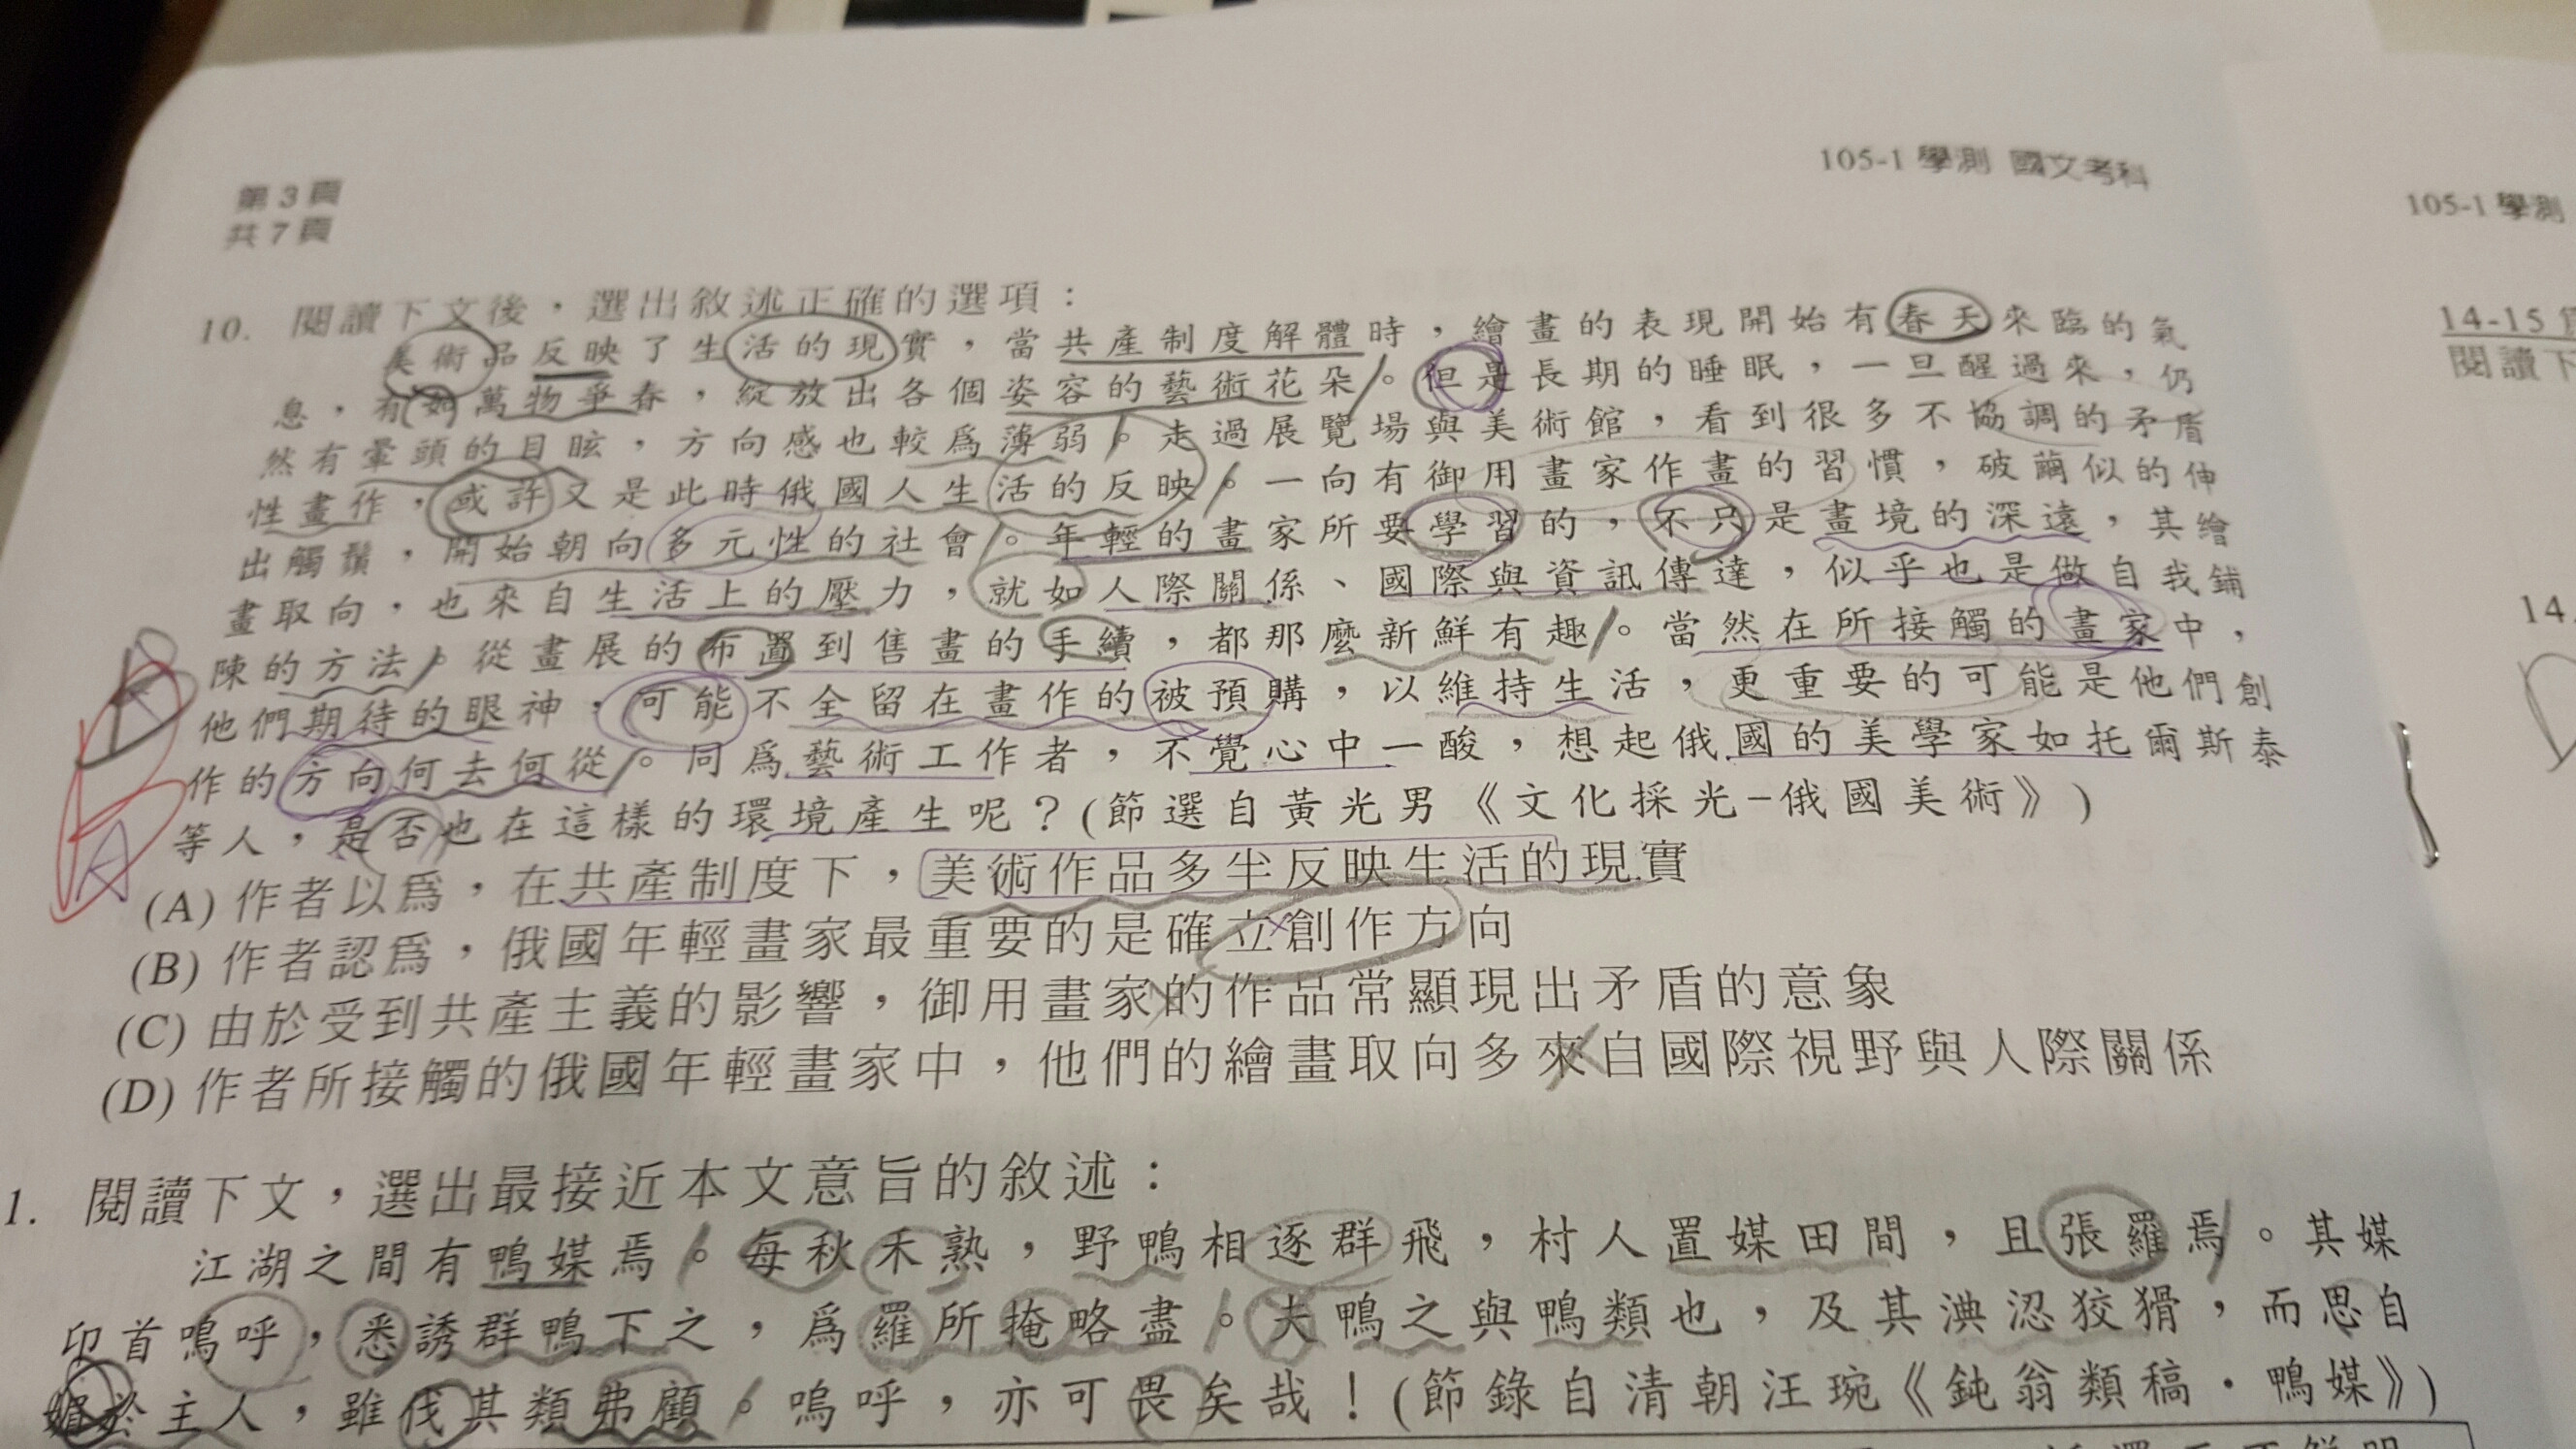 第3頁
共7頁
105-1 學測 國文考科
10. 閱讀下文後，選出敘述正確的選項：
美術品反映了生活的現實，當共產制度解體時，繪畫的表現開始有春天來臨的氣
息，有如萬物爭春，綻放出各個姿容的藝術花朵。但是長期的睡眠，一旦醒過來，仍
然有暈頭的目眩，方向感也較為薄弱。走過展覽場與美術館，看到很多不協調的矛盾
性畫作，或許又是此時俄國人生活的反映。一向有御用畫家作畫的習慣，破繭似的伸
出觸鬚，開始朝向多元性的社會。年輕的畫家所要學習的，不只是畫境的深遠，其繪
畫取向，也來自生活上的壓力，就如人際關係、國際與資訊傳達，似乎也是做自我鋪
陳的方法。從畫展的布置到售畫的手續，都那麼新鮮有趣。當然在所接觸的畫家中，
他們期待的眼神，可能不全留在畫作的被預購，以維持生活，更重要的可能是他們創
作的方向何去何從。同為藝術工作者，不覺心中一酸，想起俄國的美學家如托爾斯泰
等人，是否也在這樣的環境產生呢？(節選自黃光男《文化採光－俄國美術》)
(A) 作者以為，在共產制度下，美術作品多半反映生活的現實
(B) 作者認為，俄國年輕畫家最重要的是確立創作方向
(C) 由於受到共產主義的影響，御用畫家的作品常顯現出矛盾的意象
(D) 作者所接觸的俄國年輕畫家中，他們的繪畫取向多來自國際視野與人際關係
1. 閱讀下文，選出最接近本文意旨的敘述：
江湖之間有鴨媒焉。每秋禾熟，野鴨相逐群飛，村人置媒田間，且張羅焉。其媒
卬首鳴呼，悉誘群鴨下之，為羅所掩略盡。夫鴨之與鴨類也，及其淟涊狡猾，而思自
媚於主人，雖伐其類弗顧。嗚呼，亦可畏矣哉！(節錄自清朝汪琬《鈍翁類稿．鴨媒》)
105-1 學測
14-15
閱讀下
14.
B
A